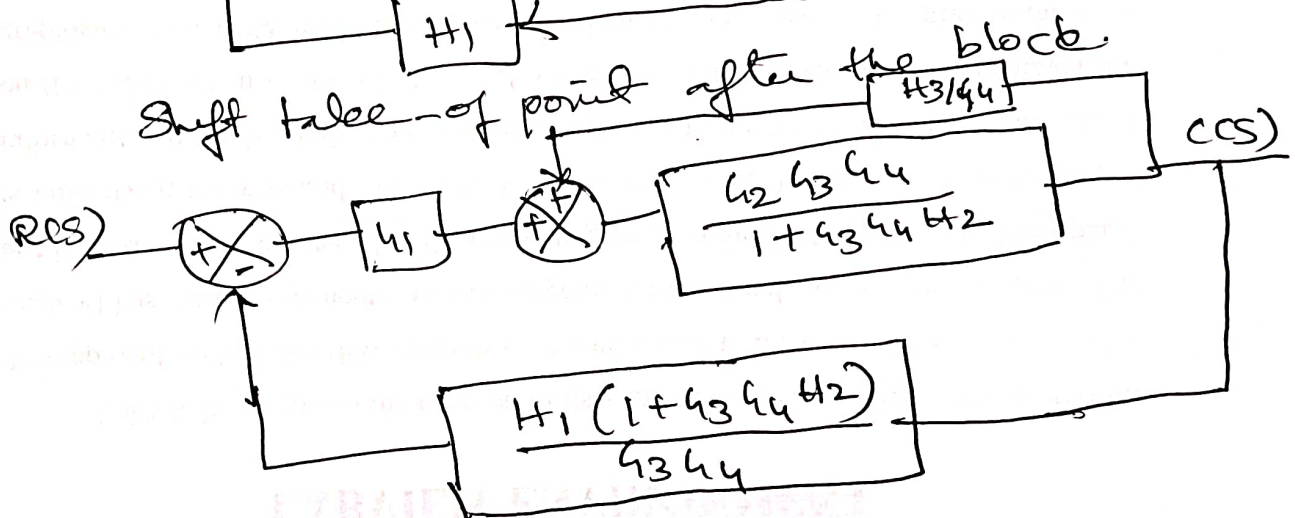 H1
Shift take-of point after the block.
H3/G4
C(S)
R(S)
+
-
G1
+
+
G2 G3 G4
1 + G3 G4 H2
H1 (1 + G3 G4 H2)
G3 G4